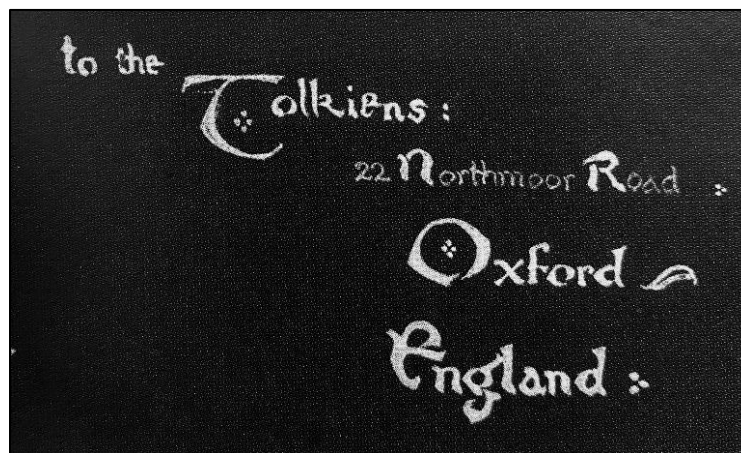 to the
Tolkiens :
22 Northmoor Road :
Oxford
England :